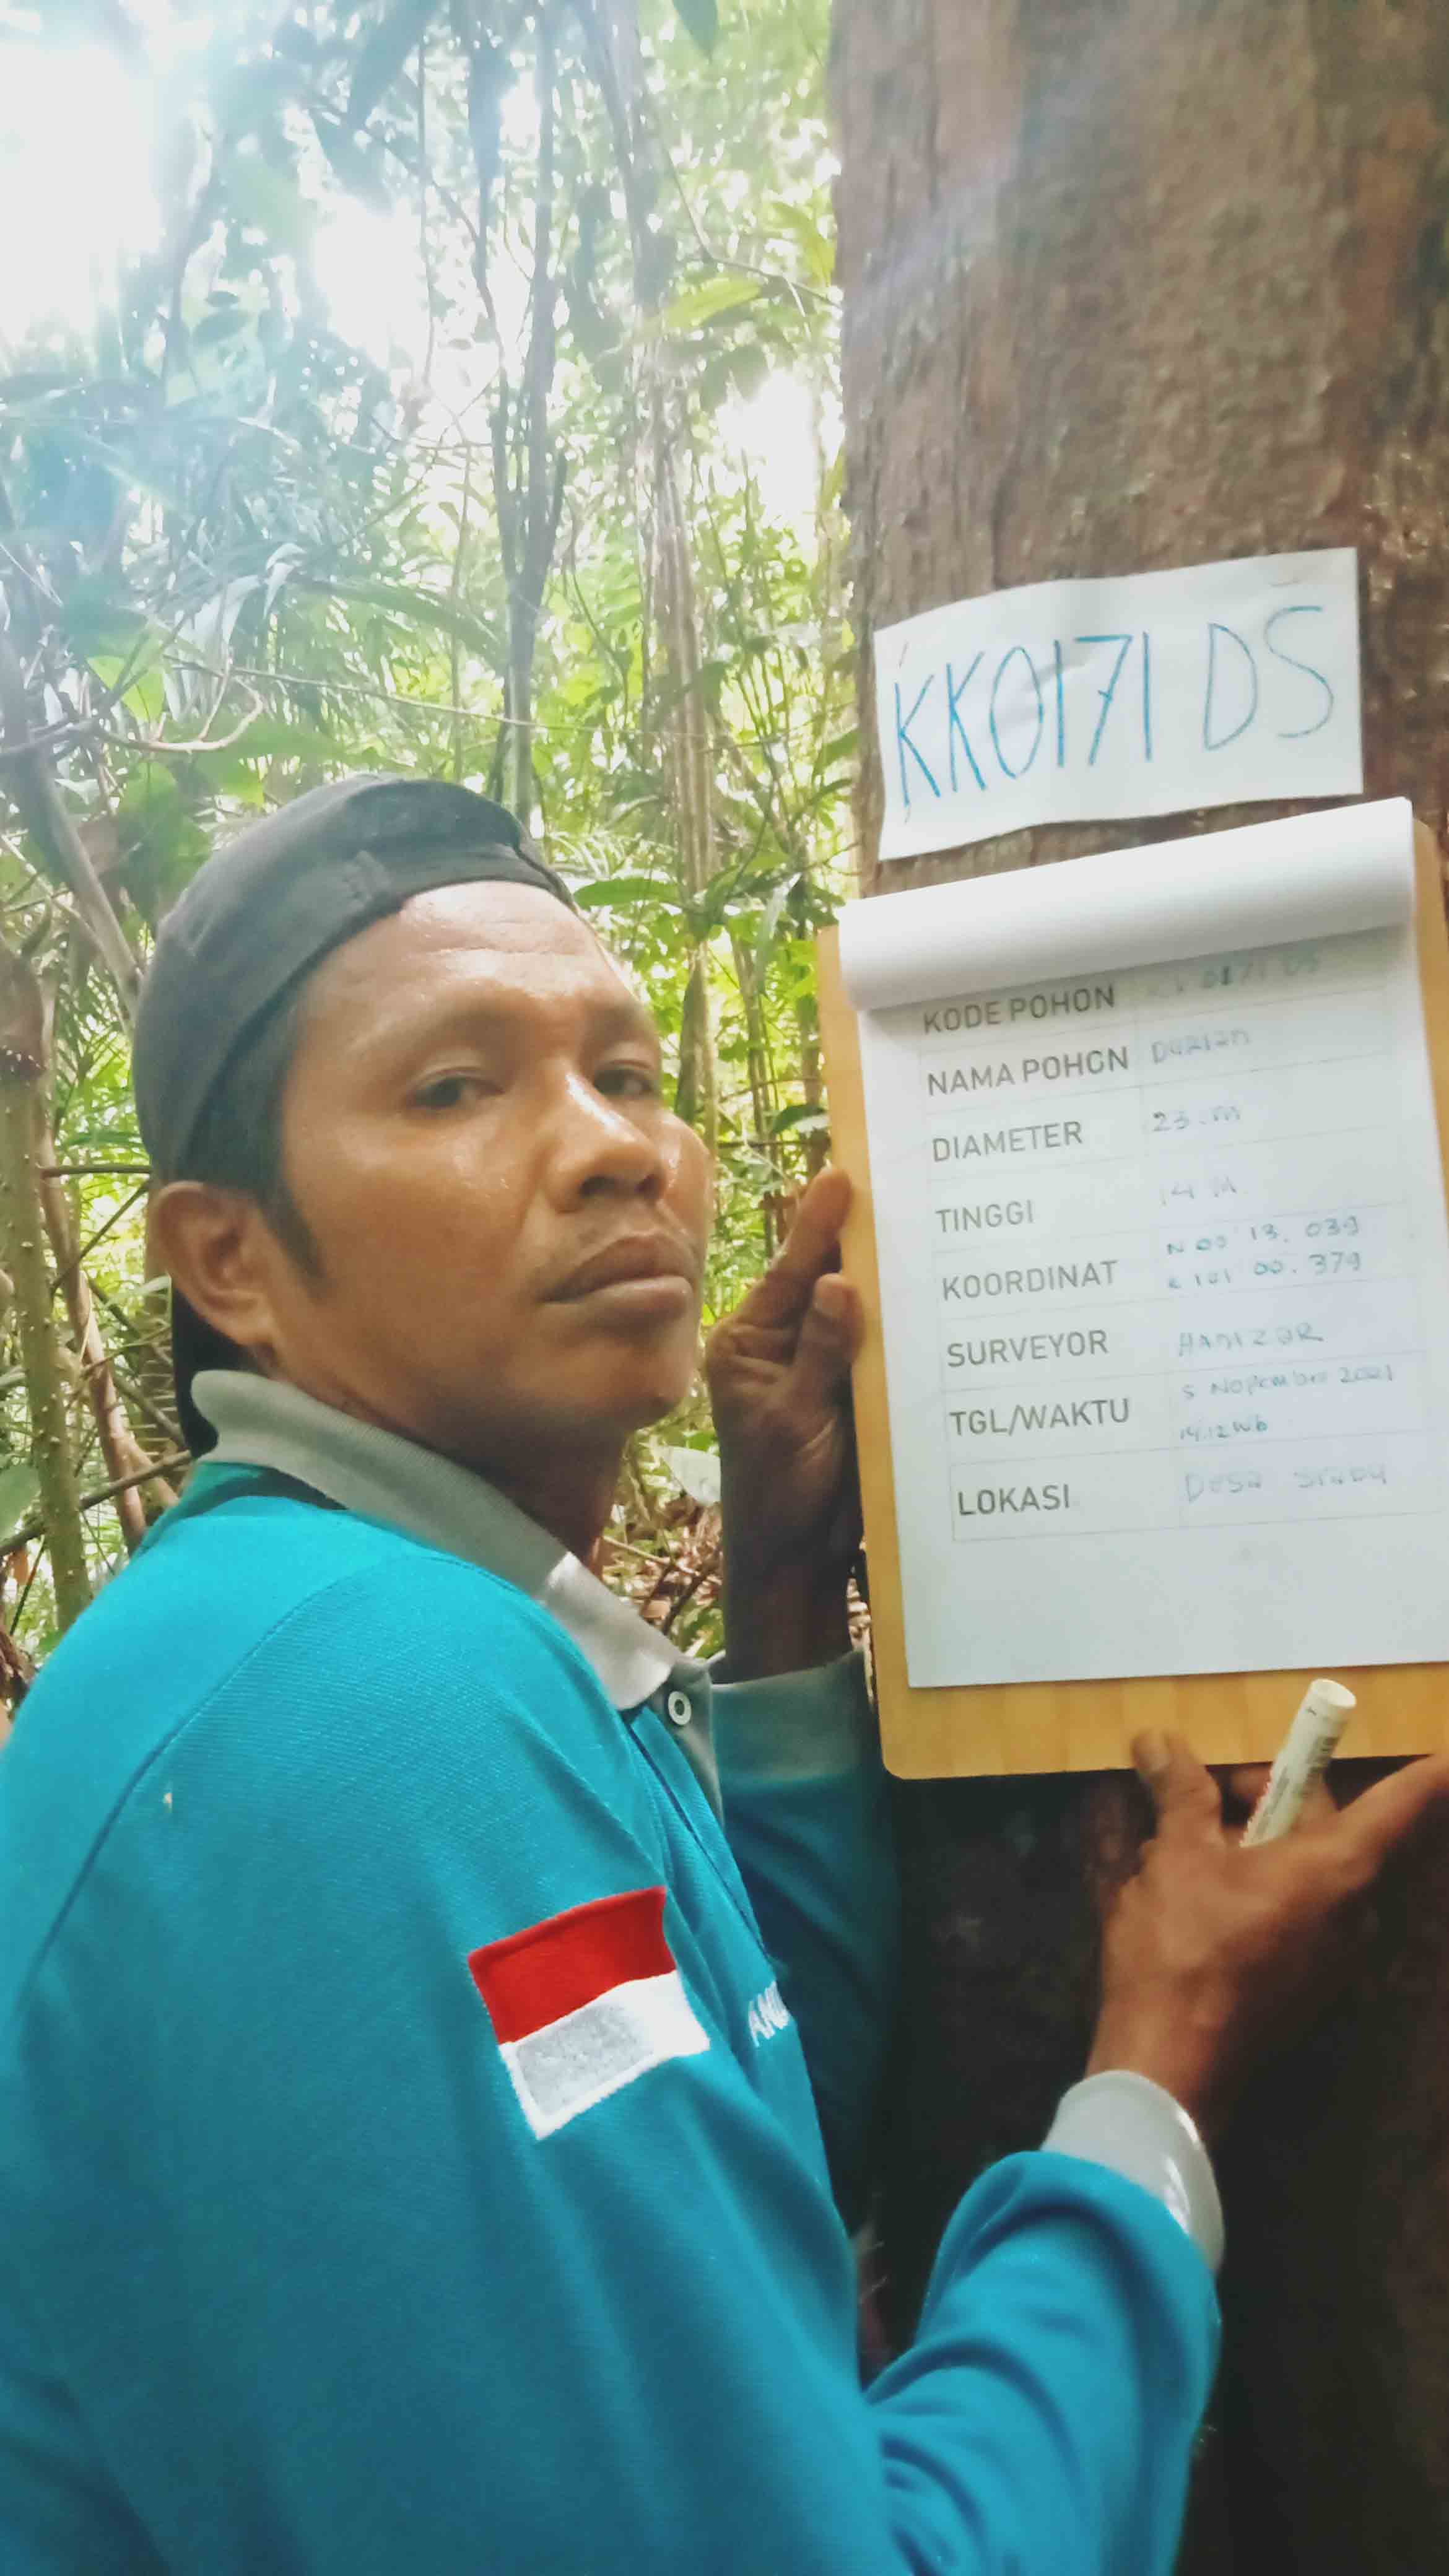 KK0171 DS
KODE POHON KK 0171 DS
NAMA POHON Durian
DIAMETER 23 cm
TINGGI 14 M
KOORDINAT N 00 13. 039
E 101 00. 379
SURVEYOR HADIZAR
TGL/WAKTU 5 Nopember 2021
14.12 Wib
LOKASI Desa
AND